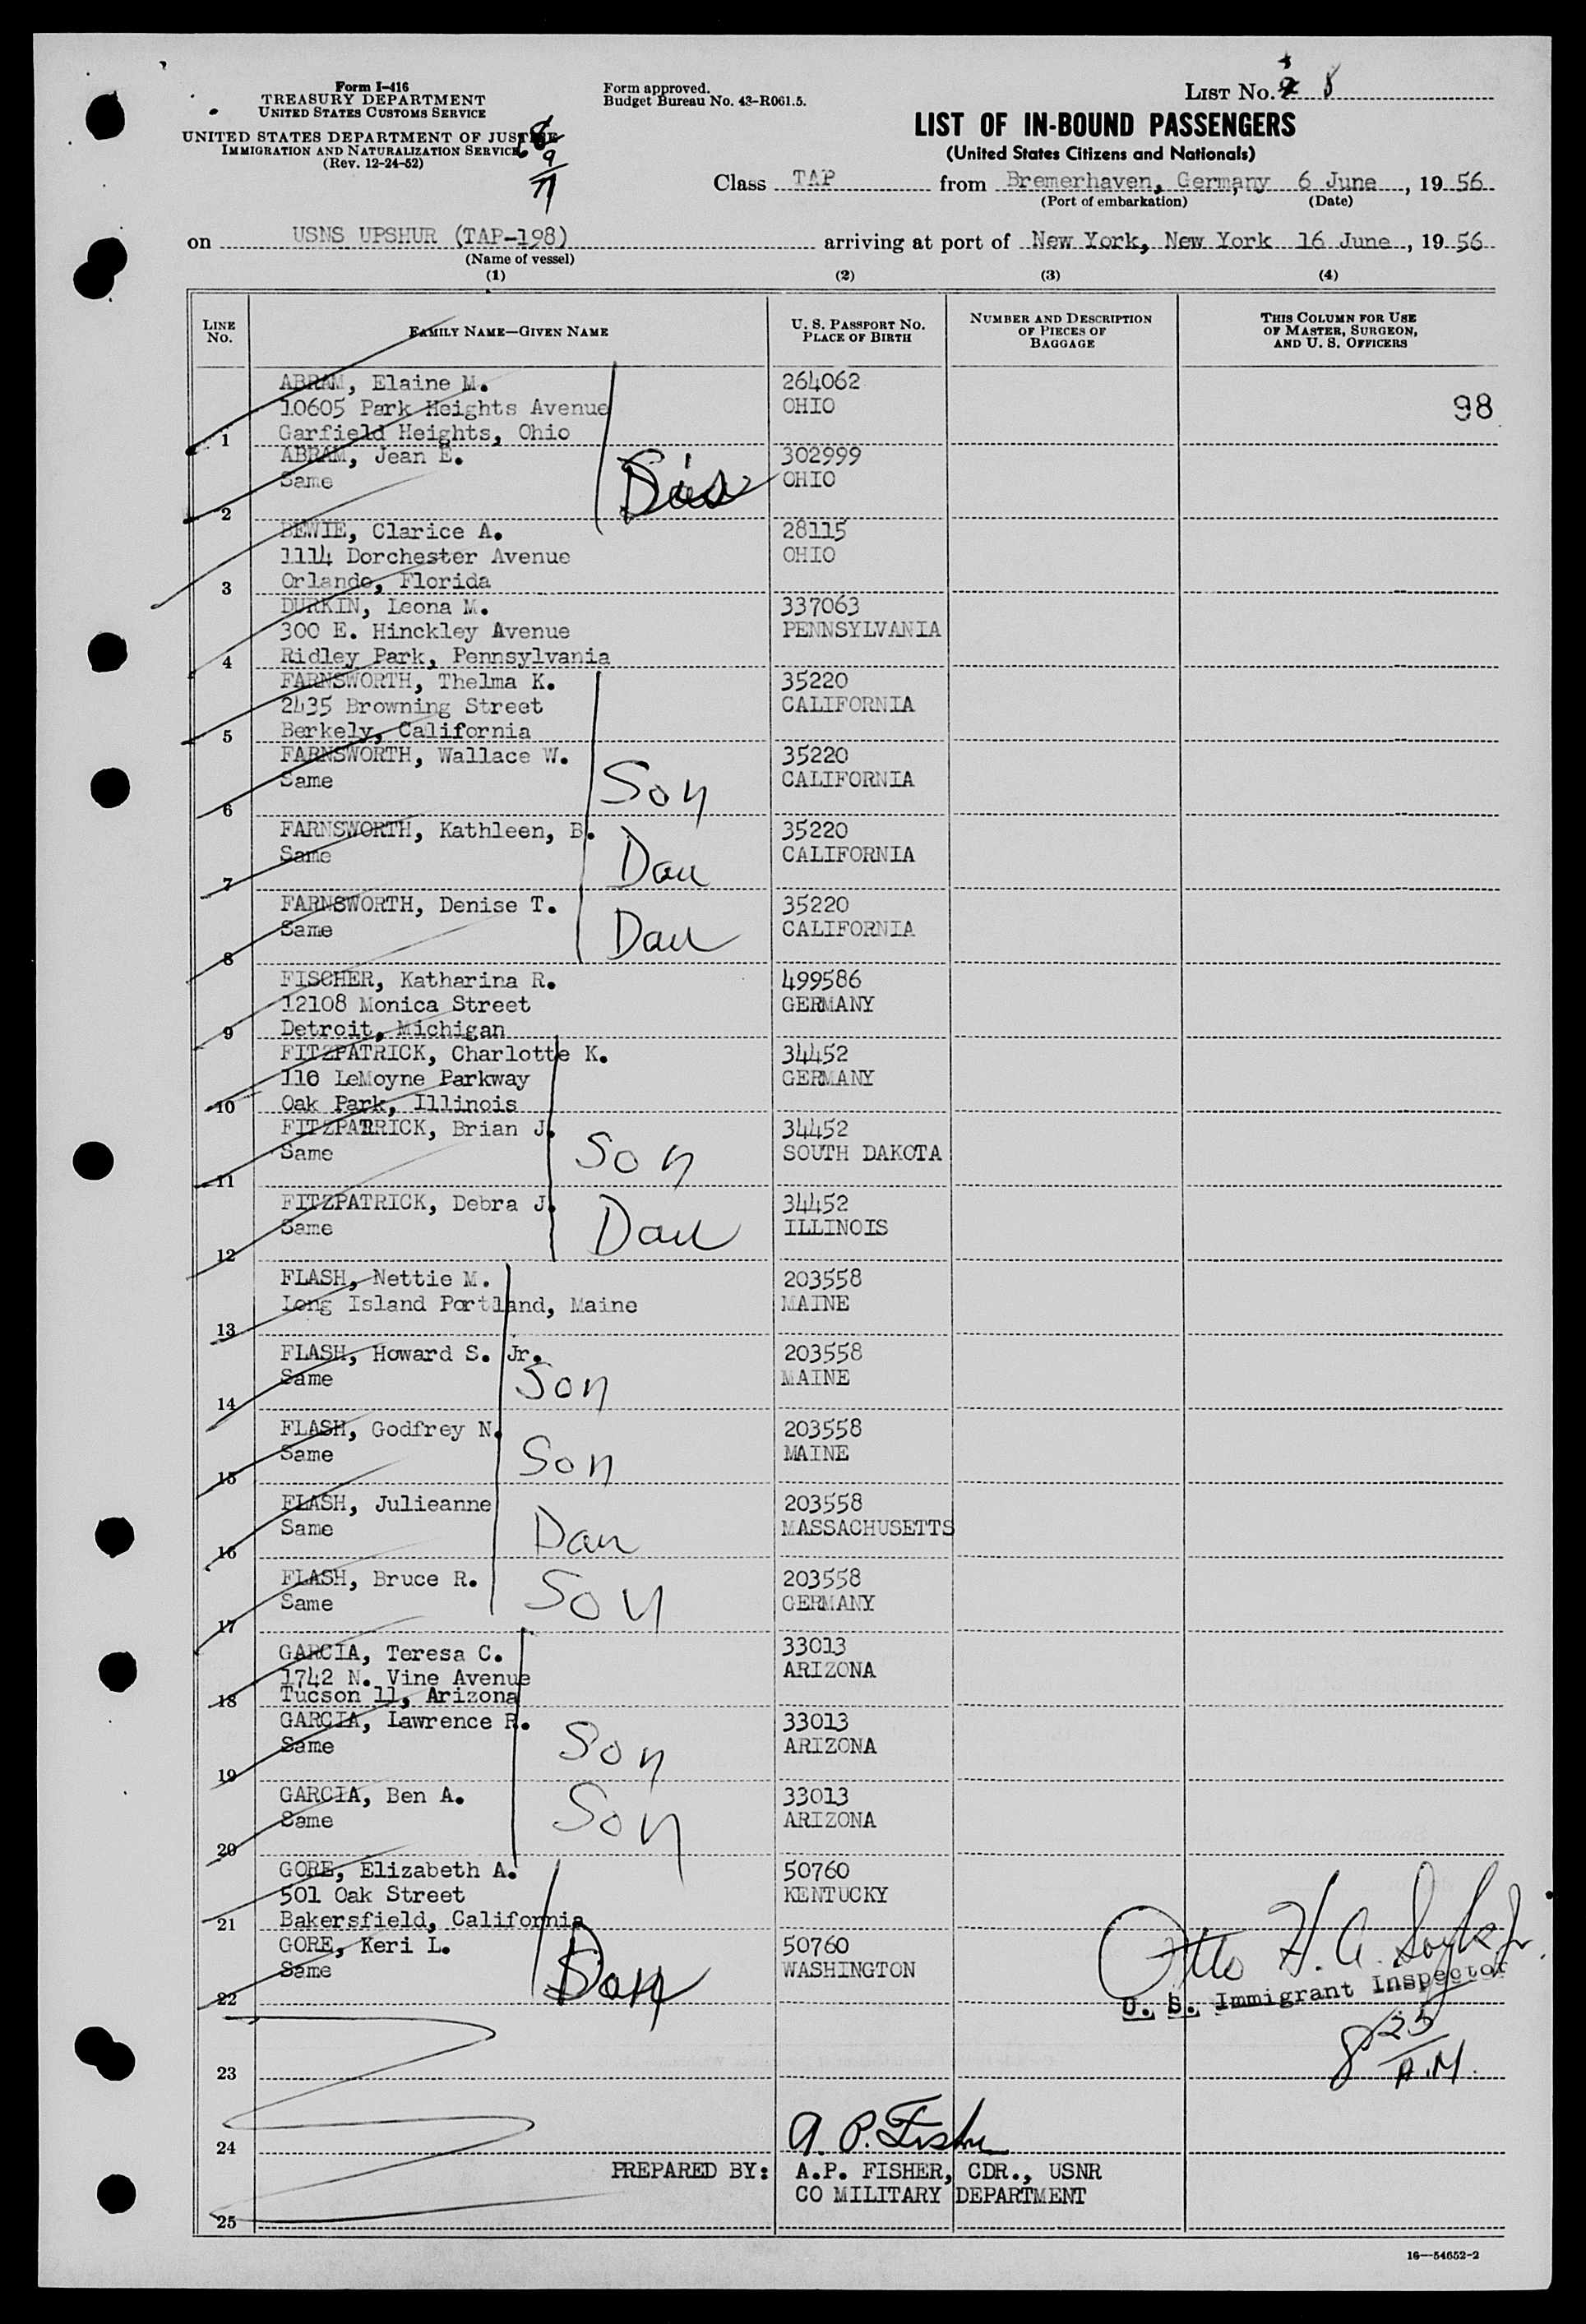 Form I-416
TREASURY DEPARTMENT
UNITED STATES CUSTOMS SERVICE
UNITED STATES DEPARTMENT OF JUSTICE
IMMIGRATION AND NATURALIZATION SERVICE
(Rev. 12-24-52)
Form approved.
Budget Bureau No. 43-R061.5.
LIST No. 8
LIST OF IN-BOUND PASSENGERS
(United States Citizens and Nationals)
Class TAP from Bremerhaven, Germany 6 June, 1956
(Port of embarkation) (Date)
on USNS UPSHUR (TAP-198) arriving at port of New York, New York 16 June, 1956
(Name of vessel)
(1) (2) (3) (4)
LINE No. FAMILY NAME—GIVEN NAME U. S. PASSPORT NO. PLACE OF BIRTH NUMBER AND DESCRIPTION OF PIECES OF BAGGAGE THIS COLUMN FOR USE OF MASTER, SURGEON, AND U. S. OFFICERS
ABRAM, Elaine M. 264062
10605 Park Heights Avenue OHIO 98
1 Garfield Heights, Ohio
ABRAM, Jean E. 302999
Same Sis OHIO
2
BEWIE, Clarice A. 28115
1114 Dorchester Avenue OHIO
3 Orlando, Florida
DURKIN, Leona M. 337063
300 E. Hinckley Avenue PENNSYLVANIA
4 Ridley Park, Pennsylvania
FARNSWORTH, Thelma K. 35220
2435 Browning Street CALIFORNIA
5 Berkely, California
FARNSWORTH, Wallace W. 35220
Same Son CALIFORNIA
6
FARNSWORTH, Kathleen, B. 35220
Same Dau CALIFORNIA
7
FARNSWORTH, Denise T. 35220
Same Dau CALIFORNIA
8
FISCHER, Katharina R. 499586
12108 Monica Street GERMANY
9 Detroit, Michigan
FITZPATRICK, Charlotte K. 34452
110 LeMoyne Parkway GERMANY
10 Oak Park, Illinois
FITZPATRICK, Brian J. 34452
Same Son SOUTH DAKOTA
11
FITZPATRICK, Debra J. 34452
Same Dau ILLINOIS
12
FLASH, Nettie M. 203558
Long Island Portland, Maine MAINE
13
FLASH, Howard S. Jr. 203558
Same Son MAINE
14
FLASH, Godfrey N. 203558
Same Son MAINE
15
FLASH, Julieanne 203558
Same Dau MASSACHUSETTS
16
FLASH, Bruce R. 203558
Same Son GERMANY
17
GARCIA, Teresa C. 33013
1742 N. Vine Avenue ARIZONA
18 Tucson 11, Arizona
GARCIA, Lawrence R. 33013
Same Son ARIZONA
19
GARCIA, Ben A. 33013
Same Son ARIZONA
20
GORE, Elizabeth A. 50760
501 Oak Street KENTUCKY
21 Bakersfield, California
GORE, Keri L. 50760
Same WASHINGTON
22
Otto H. A.
U. S. Immigrant Inspector
8 25
A.M.
23
A. P. Fisher
24
PREPARED BY: A.P. FISHER, CDR., USNR
CO MILITARY DEPARTMENT
25
16—54652-2